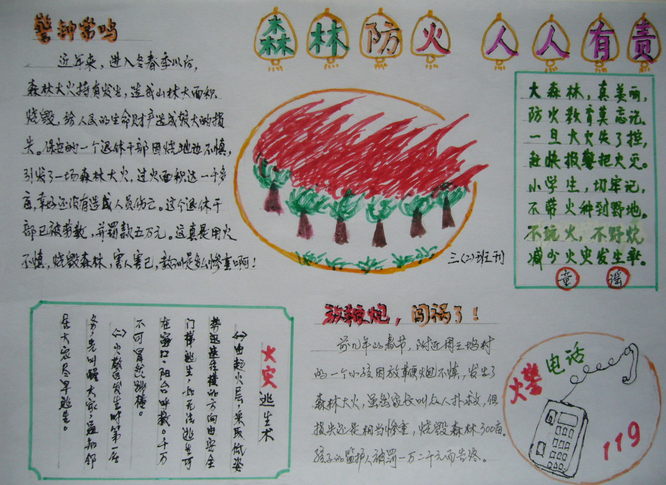 森林防火 人人有责
警钟常鸣
近年来，进入冬春季以后，
森林大火时有发生，造成山林大面积
烧毁，给人民的生命财产造成很大的损
失。保安的一个退休干部因烧地边不慎，
引发了一场森林大火，过火面积达一千多
亩，幸好还没有造成人员伤亡。这个退休干
部已被拘教，并罚款五万元，这真是用火
不慎，烧毁森林，害人害己，教训是惨重啊！
三(2)班刊
大森林，真美丽，
防火教育莫忘记，
一旦大火失了控，
赶快报警把火灭。
小学生，切牢记，
不带火种到野地。
不玩火，不野炊，
减少火灾发生率。
童谣
火灾逃生术
(一)由起火层，采取低姿
势迅速在楼的方向由安全
门梯逃生，如无法逃生可
在窗口，阳台呼救。千万
不可冒然跳楼。
(二)火灾发生时第一层
为，先叫醒大家，通知邻
居火灾及早逃生。
放鞭炮，闯祸了！
前几年的春节，附近周三场村
的一个小孩因放鞭炮不慎，发生了
森林大火，虽然家长叫众人扑救，但
损失还是相当惨重，烧毁森林300亩，
孩子的监护人被罚一万二千元而告终。
火警电话
119